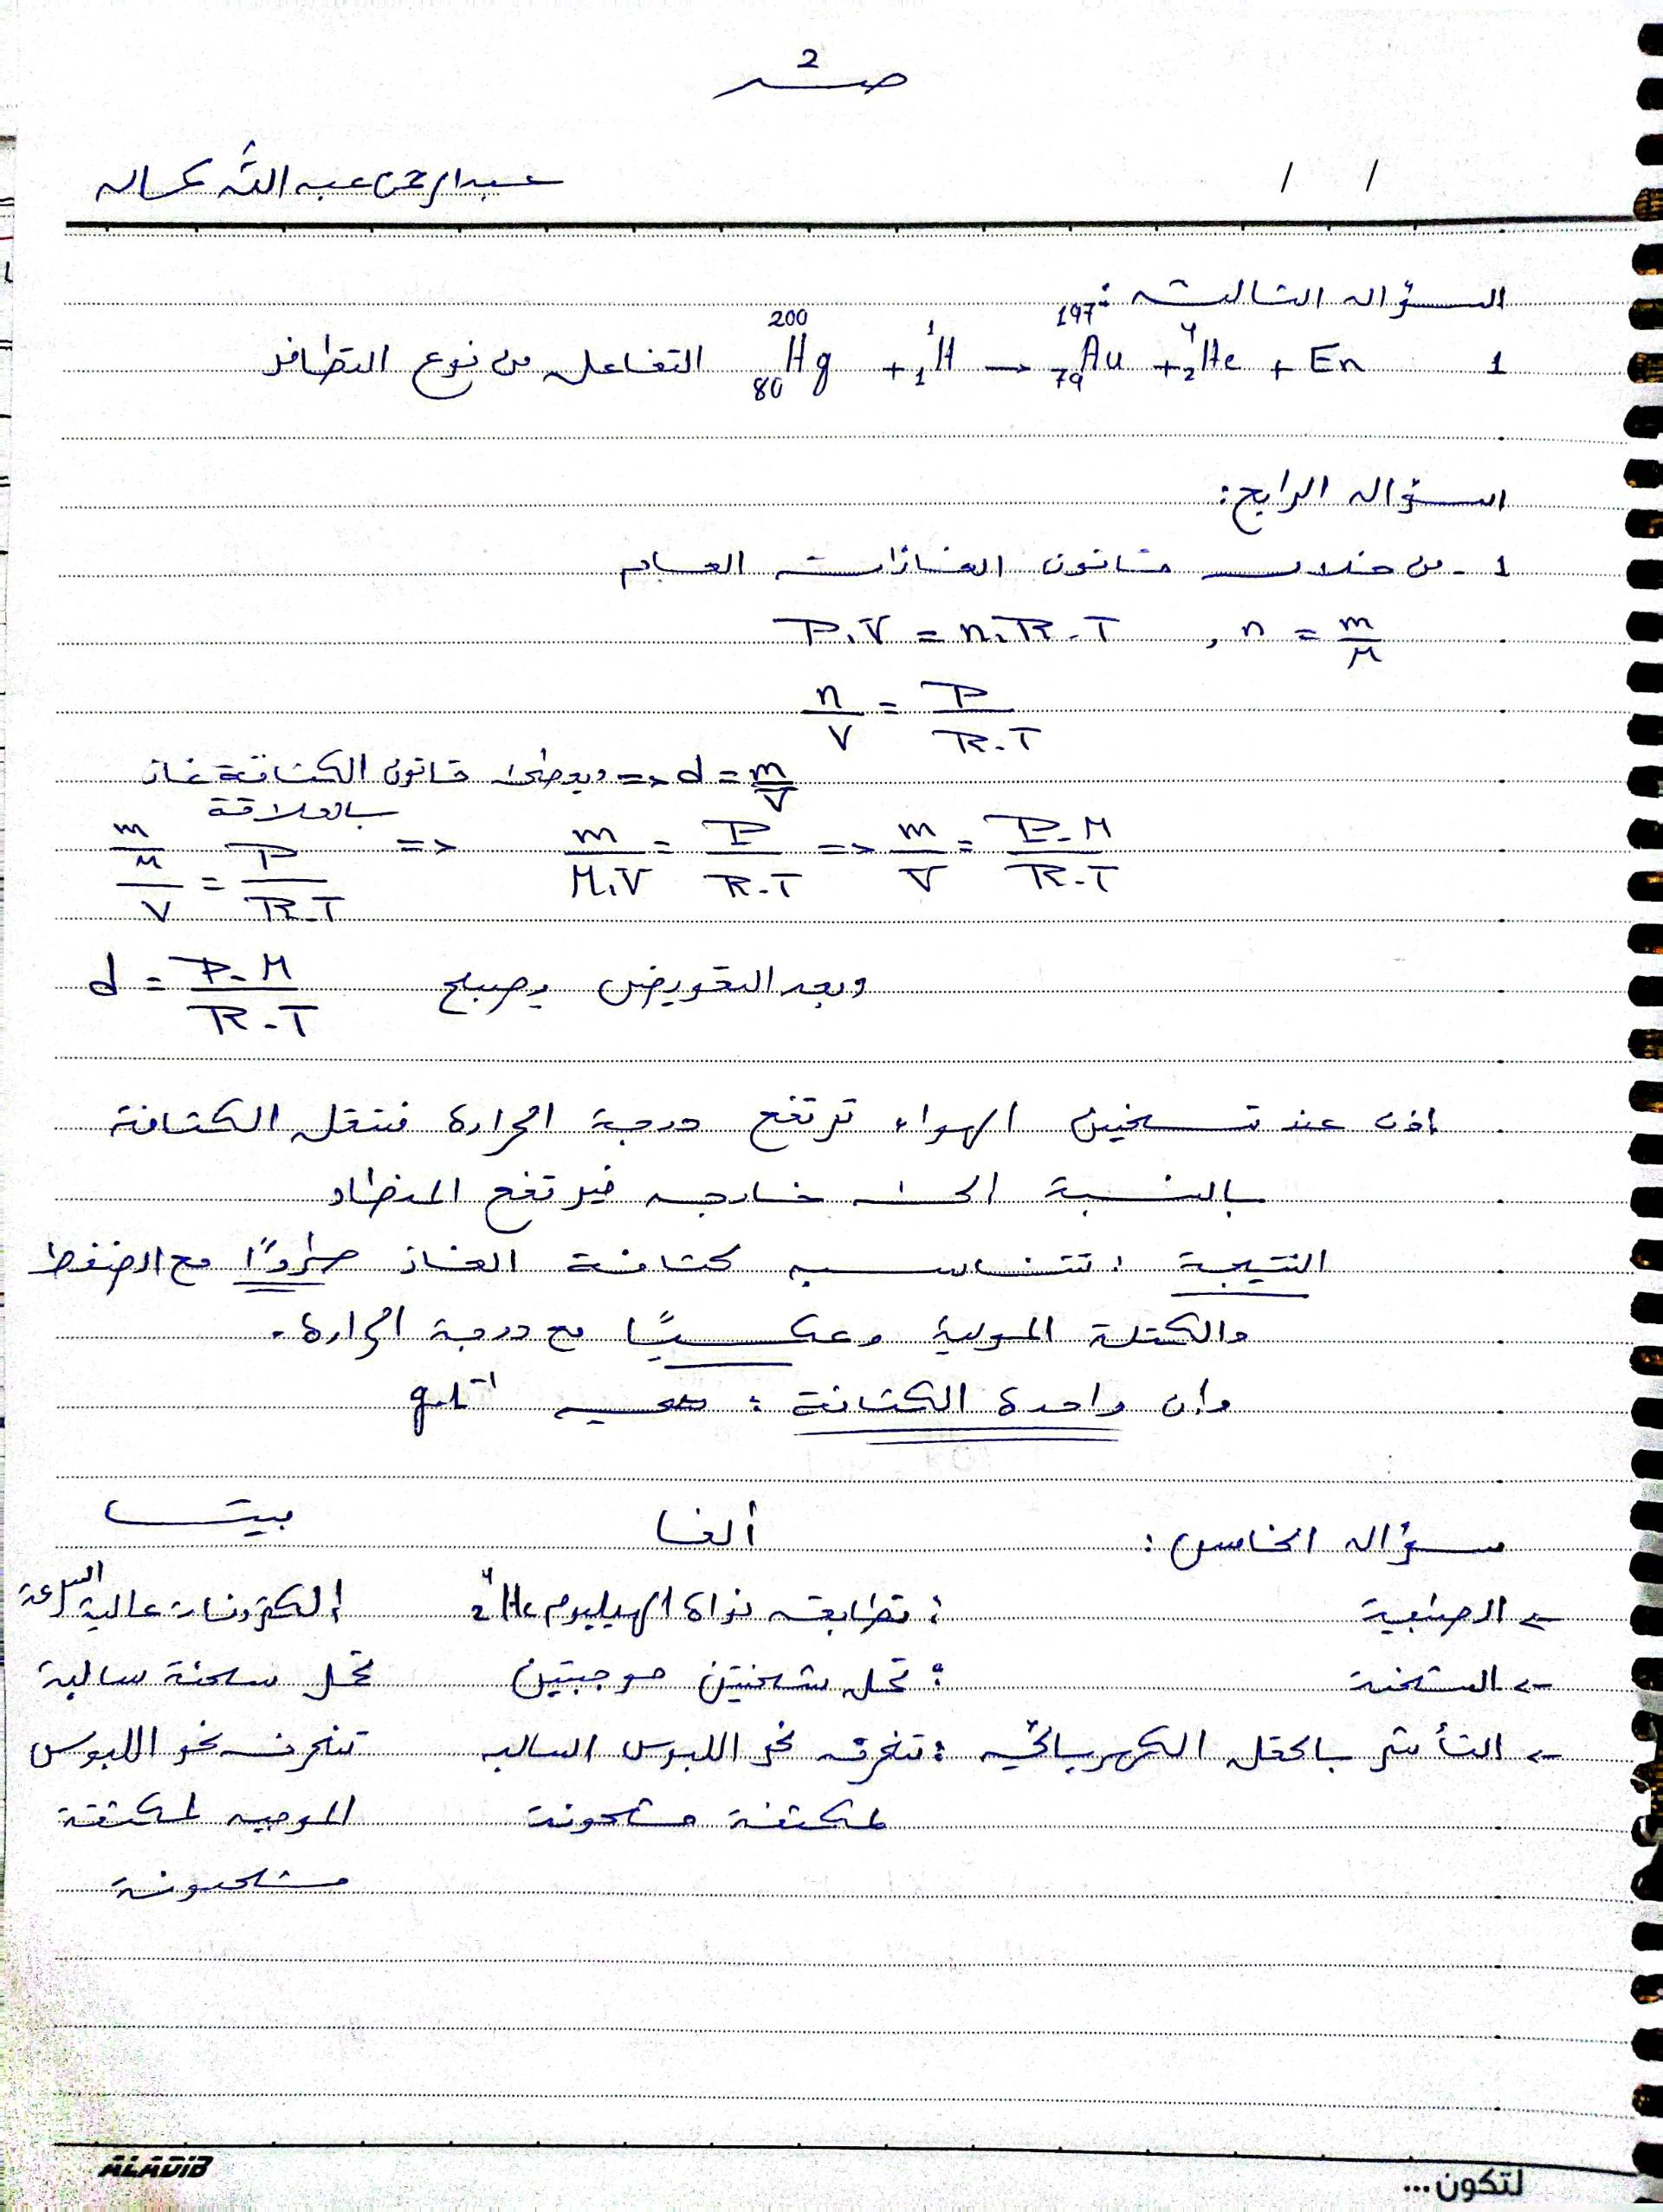 صـ 2
عبدالرحمن عبد الله
/ /
السؤال الثالث:
1 ²⁰⁰₈₀Hg + ¹₁H → ¹⁹⁷₇₉Au + ⁴₂He + En التفاعل من نوع التطافر
السؤال الرابع:
1 - من خلال قانون الغازات العام
P.V = n.R.T , n = m/M
n/V = P/R.T
d = m/V <= ويعطى قانون الكثافة غاز
بالعلاقة
(m/M)/V = P/R.T => m/M.V = P/R.T => m/V = P.M/R.T
وبعد التعويض يصبح d = P.M/R.T
إذن عند تسخين الهواء ترتفع درجة الحرارة فتقل الكثافة
بالنسبة الى خارجه فيرتفع المنطاد
النتيجة : تتناسب كثافة الغاز طرداً مع الضغط
والكتلة المولية وعكسياً مع درجة الحرارة.
وإن واحدة الكثافة : هي g.L⁻¹
سؤال الخامس : ألفا بيتا
← الطبيعة : تطابق نواة الهيليوم ⁴₂He إلكترونات عالية السرعة
← الشحنة : تحمل شحنتين موجبتين تحمل شحنة سالبة
← التأثر بالحقل الكهربائي : تنحرف نحو اللبوس السالب تنحرف نحو اللبوس
لمكثفة مشحونة الموجب لمكثفة
مشحونة
ALADIB
لتكون...